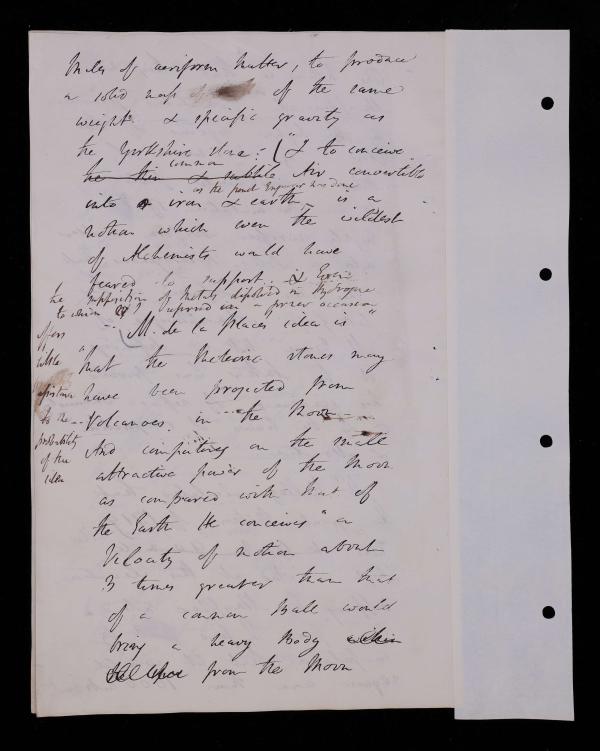 Miles of aeriform matter, to produce
a solid mass of the same
weight & specific gravity as
the Yorkshire stone: ("& to conceive
common
the thin & subtile Air convertible
as the french Enquirer has done
into iron & earth is a
notion which even the wildest
of Alchemists would have
feared to support. & Even
the supposition of metals dissolved in Hydrogene
to which I referred on a former occasion
offers
little
assistance
to the
probability
of the
idea
(M. de la Places idea is"
"that the Meteoric stones may
have been projected from
Volcanoes in the Moon
And computing on the small
attractive power of the Moon
as compared with that of
the Earth He conceives "a
Velocity of motion about
3 times greater than that
of a cannon Ball would
bring a heavy Body
from the Moon